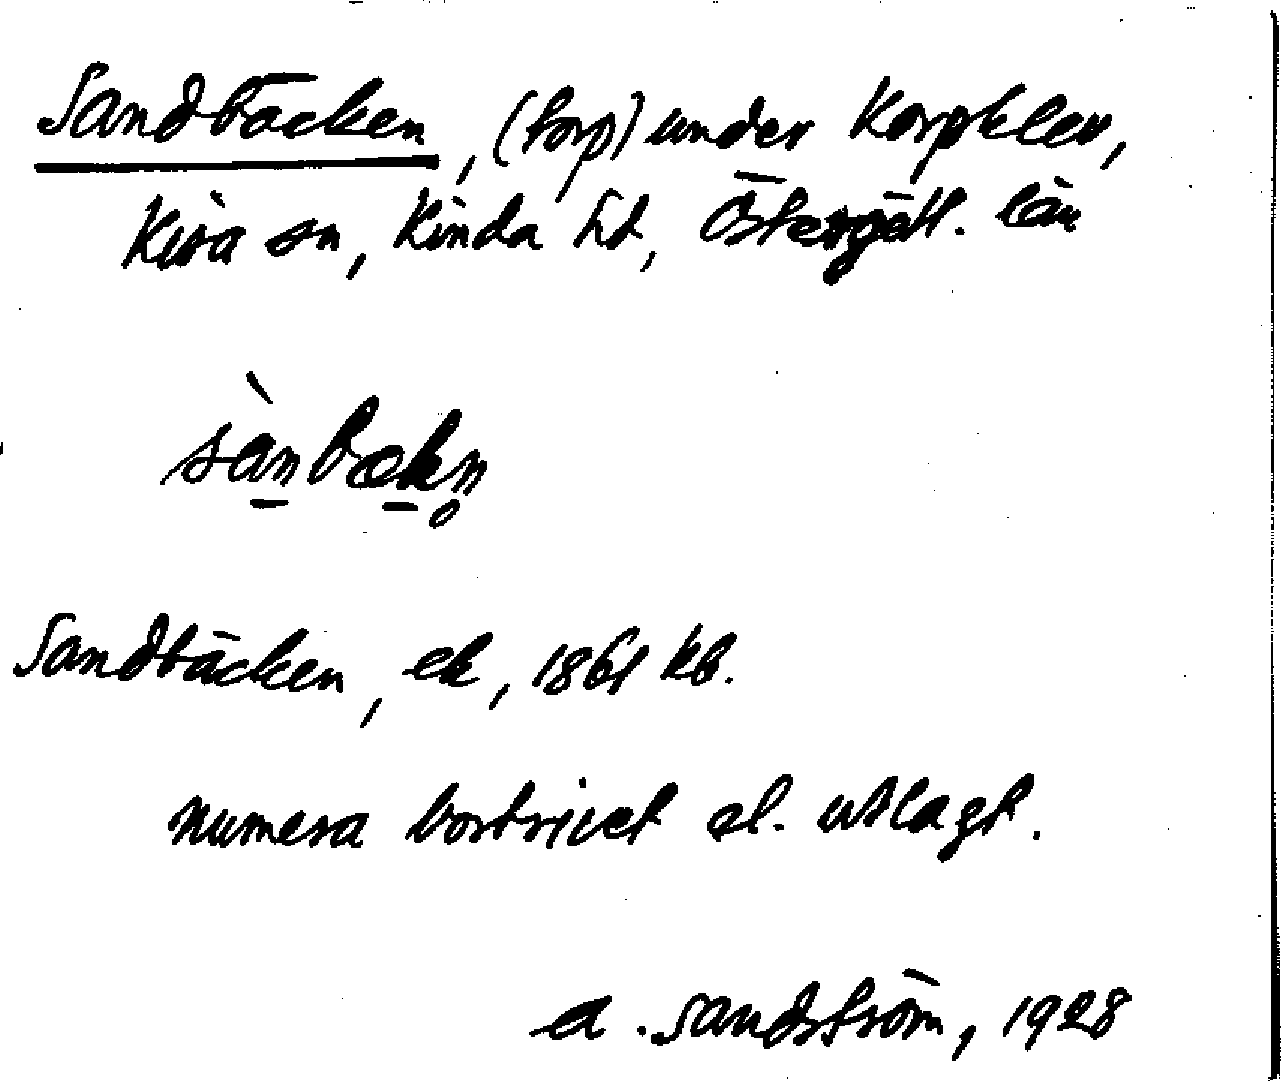 Sandbäcken, (torp) under Korpklev,
Kisa sn, Kinda hd, Östergötl. län
sànbækn̥
Sandbäcken, ek, 1861 kb.
numera bortrivet el. utlagt.
A. Sandström, 1928